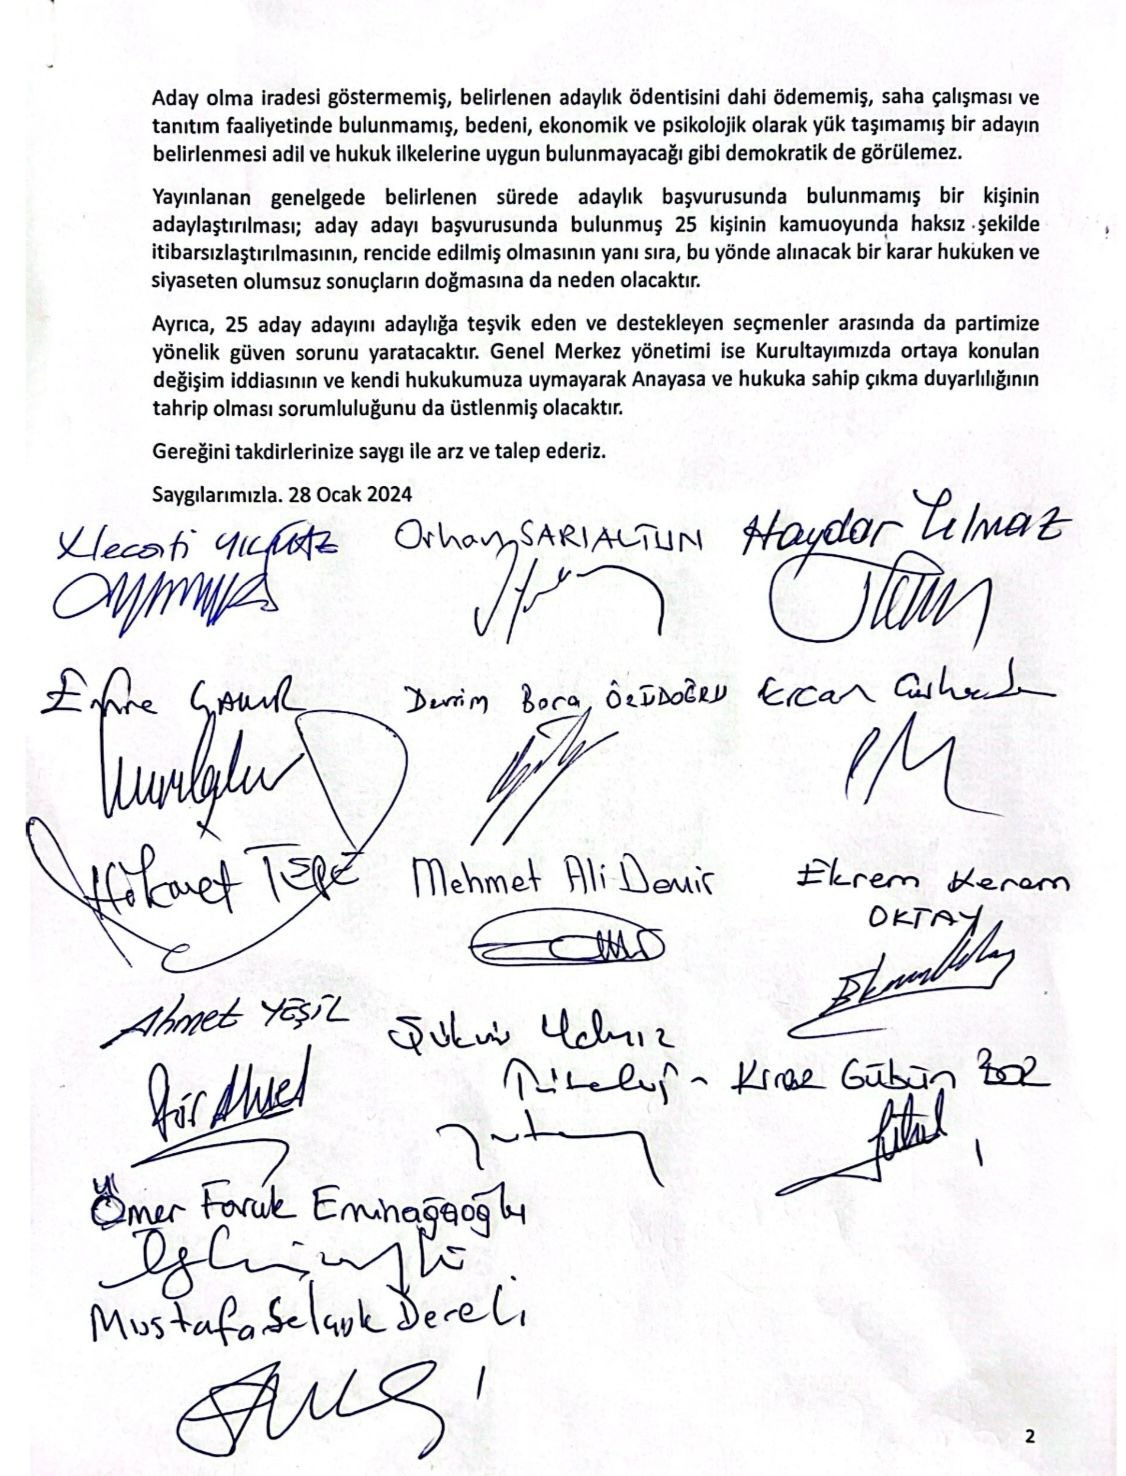 Aday olma iradesi göstermemiş, belirlenen adaylık ödentisini dahi ödememiş, saha çalışması ve
tanıtım faaliyetinde bulunmamış, bedeni, ekonomik ve psikolojik olarak yük taşımamış bir adayın
belirlenmesi adil ve hukuk ilkelerine uygun bulunmayacağı gibi demokratik de görülemez.
Yayınlanan genelgede belirlenen sürede adaylık başvurusunda bulunmamış bir kişinin
adaylaştırılması; aday adayı başvurusunda bulunmuş 25 kişinin kamuoyunda haksız şekilde
itibarsızlaştırılmasının, rencide edilmiş olmasının yanı sıra, bu yönde alınacak bir karar hukuken ve
siyaseten olumsuz sonuçların doğmasına da neden olacaktır.
Ayrıca, 25 aday adayını adaylığa teşvik eden ve destekleyen seçmenler arasında da partimize
yönelik güven sorunu yaratacaktır. Genel Merkez yönetimi ise Kurultayımızda ortaya konulan
değişim iddiasının ve kendi hukukumuza uymayarak Anayasa ve hukuka sahip çıkma duyarlılığının
tahrip olması sorumluluğunu da üstlenmiş olacaktır.
Gereğini takdirlerinize saygı ile arz ve talep ederiz.
Saygılarımızla. 28 Ocak 2024
Necati Orhan SARIALTUN Haydar Yılmaz
Emre Devrim Bora ÖZÜDOĞRU Ercan
Hikmet TEPE Mehmet Ali Demir Ekrem Kerem
OKTAY
Ahmet YEŞİL Şükrü
Gübün BOZ
Ömer Faruk Eminağaoğlu
Mustafa Selçuk Dereli
2